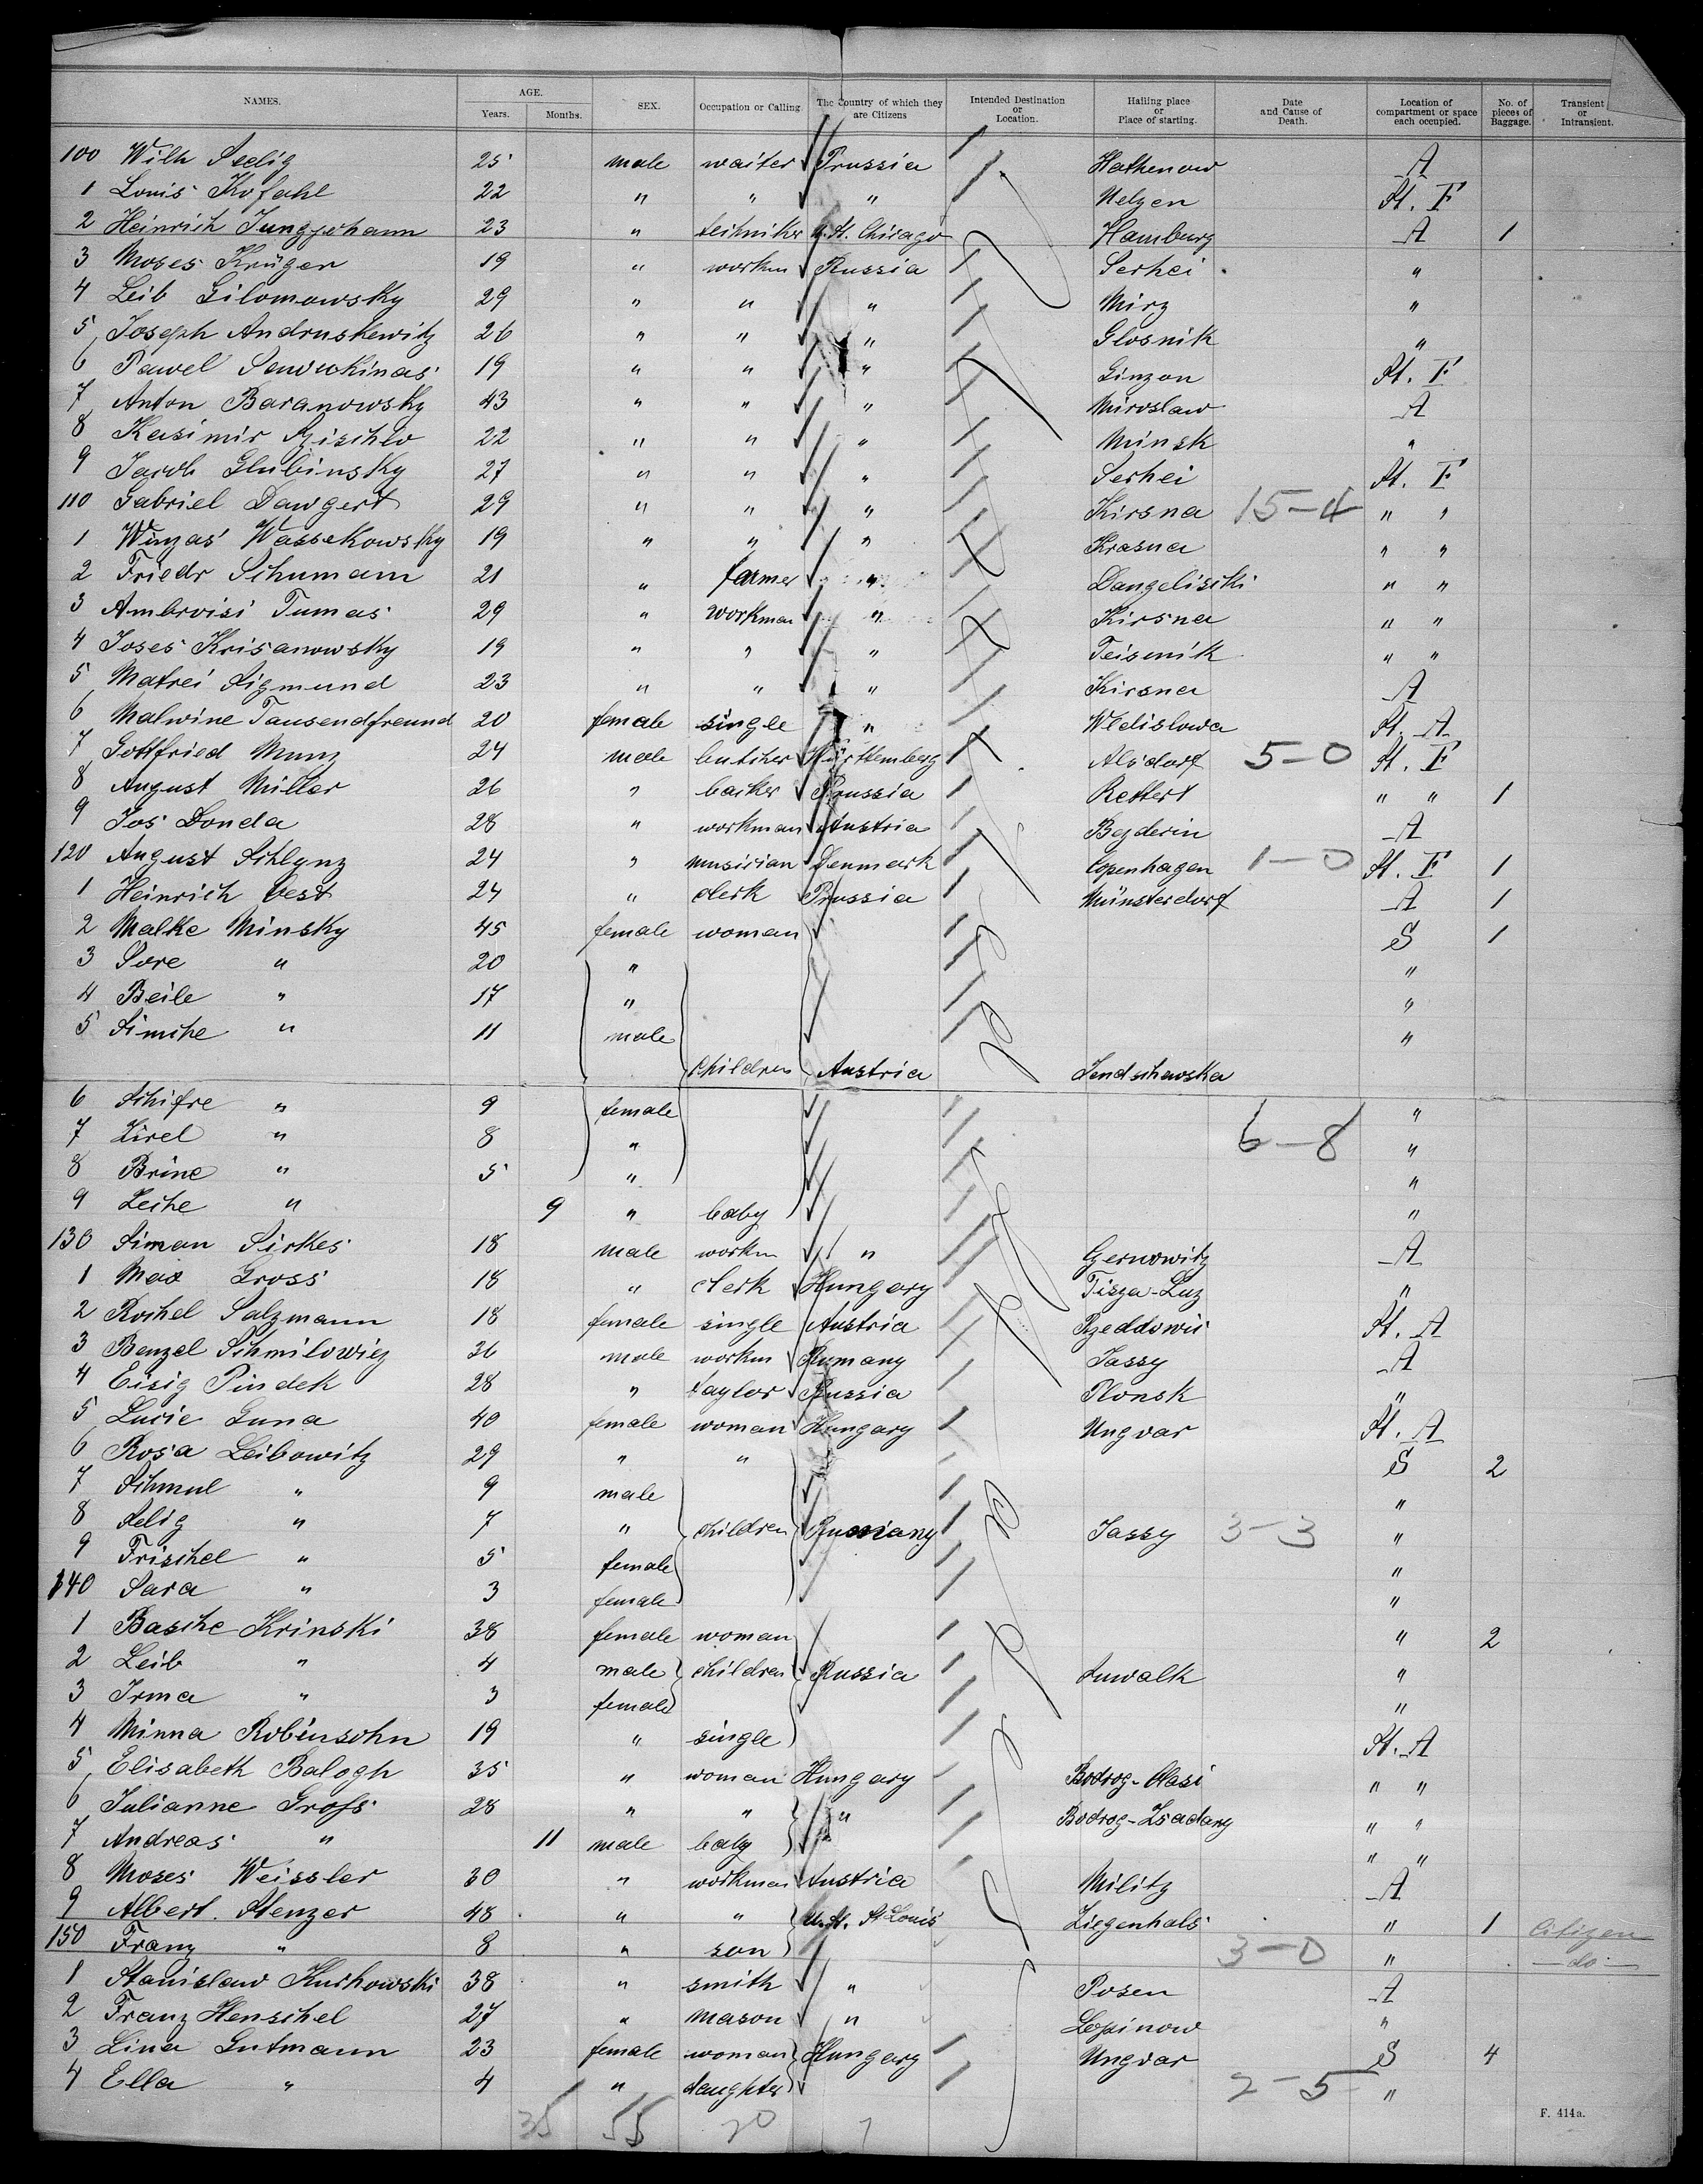 NAMES. AGE. Years. Months. SEX. Occupation or Calling. The Country of which they are Citizens Intended Destination or Location. Hailing place or Place of starting. Date and Cause of Death. Location of compartment or space each occupied. No. of pieces of Baggage. Transient or Intransient.
100 Wilh Seelig 25 male waiter Prussia Hathenow A
1 Louis Kofahl 22 " " " Uelzen St. F
2 Heinrich Jungjohann 23 " techniker U. St. Chicago Hamburg A 1
3 Moses Krüger 19 " workm Russia Serhei "
4 Leib Gilomowsky 29 " " " Mirz "
5 Joseph Andruskewitz 26 " " " Glosnik "
6 Pawel 19 " " " Ginzon St. F
7 Anton Baranowsky 43 " " " Miroslaw A
8 Kasimir 22 " " " Minsk "
9 Jacob Glubinsky 27 " " " Serhei St. F
110 Gabriel Dawgert 29 " " " Kirsna 15-4 " "
1 Winzas Wassekowsky 19 " " " Krasna " "
2 Friedr Schumann 21 " farmer " Dangelischki " "
3 Ambroisi Tumas 29 " workman " Kirsna " "
4 Joses Krisanowsky 19 " " " Teisenik " "
5 Matrei Sigmund 23 " " " Kirsna A
6 Malwine Tausendfreund 20 female single " Wledislowa St. A
7 Gottfried Munz 24 male butcher Württemberg Alsdorf 5-0 St. F
8 August Müller 26 " backer Prussia Rettert " " 1
9 Jos Donda 28 " workman Austria Bezderin A
120 August Schlynz 24 " musician Denmark Copenhagen 1-0 St. F 1
1 Heinrich Oest 24 " clerk Prussia Münsterdorf A 1
2 Malke Minsky 45 female woman S 1
3 Sore " 20 " "
4 Beile " 17 " "
5 Simche " 11 male "
children Austria Jendschewska
6 Schifre " 9 female "
7 Zirel " 8 " 6-8 "
8 Brine " 5 " "
9 Leihe " 9 " baby "
130 Siman Sirkes 18 male workm " Gernowitz A
1 Max Gross 18 " clerk Hungary Tisza-Luz "
2 Rochel Salzmann 18 female single Austria Rzeddowic St. A
3 Benzel Schmilowicz 36 male workm Rumany Jassy A
4 Eisig Pindek 28 " taylor Russia Plonsk "
5 Lucie Guna 40 female woman Hungary Ungvar St. A
6 Rosa Leibowitz 29 " " S 2
7 Schmul " 9 male "
8 Selig " 7 " children Rumany Jassy 3-3 "
9 Frischel " 5 female "
140 Sara " 3 female "
1 Basche Krinski 38 female woman " 2
2 Leib " 4 male children Russia Suwalk "
3 Irma " 3 female "
4 Minna Robinsohn 19 " single St. A
5 Elisabeth Balogh 35 " woman Hungary Bodrog-Olasi " "
6 Julianne Gross 28 " " " Bodrog-Zsadany " "
7 Andreas " 11 male baby " " "
8 Moses Weissler 30 " workman Austria Militz A
9 Albert Stenzer 48 " " U. St. St Louis Ziegenhals " 1 Citizen
150 Franz " 8 " son 3-0 " -do-
1 Stanislaw Kuchowski 38 " smith " Posen A
2 Franz Henschel 27 " mason " Lopinow "
3 Lina Gutmann 23 female woman Hungary Ungvar S 4
4 Ella " 4 " daughter 2-5 "
35 55 20 7
F. 414a.